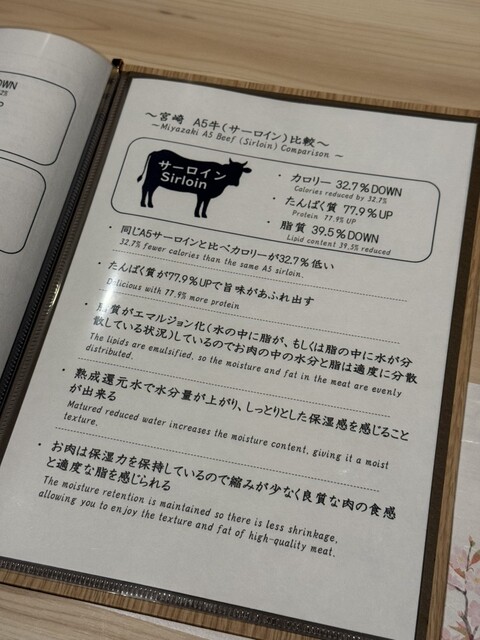 DOWN
UP
～宮崎 A5牛(サーロイン)比較～
～Miyazaki A5 Beef (Sirloin) Comparison ～
サーロイン
Sirloin
・ カロリー 32.7％DOWN
Calories reduced by 32.7%
・ たんぱく質 77.9％UP
Protein 77.9% UP
・ 脂質 39.5％DOWN
Lipid content 39.5% reduced
・ 同じA5サーロインと比べカロリーが32.7％低い
32.7% fewer calories than the same A5 sirloin.
・ たんぱく質が77.9％UPで旨味があふれ出す
Delicious with 77.9% more protein
・ 脂質がエマルジョン化(水の中に脂が、もしくは脂の中に水が分
散している状況)しているのでお肉の中の水分と脂は適度に分散
The lipids are emulsified, so the moisture and fat in the meat are evenly
distributed.
・ 熟成還元水で水分量が上がり、しっとりとした保湿感を感じること
が出来る
Matured reduced water increases the moisture content, giving it a moist
texture.
・ お肉は保湿力を保持しているので縮みが少なく良質な肉の食感
と適度な脂を感じられる
The moisture retention is maintained so there is less shrinkage,
allowing you to enjoy the texture and fat of high-quality meat.